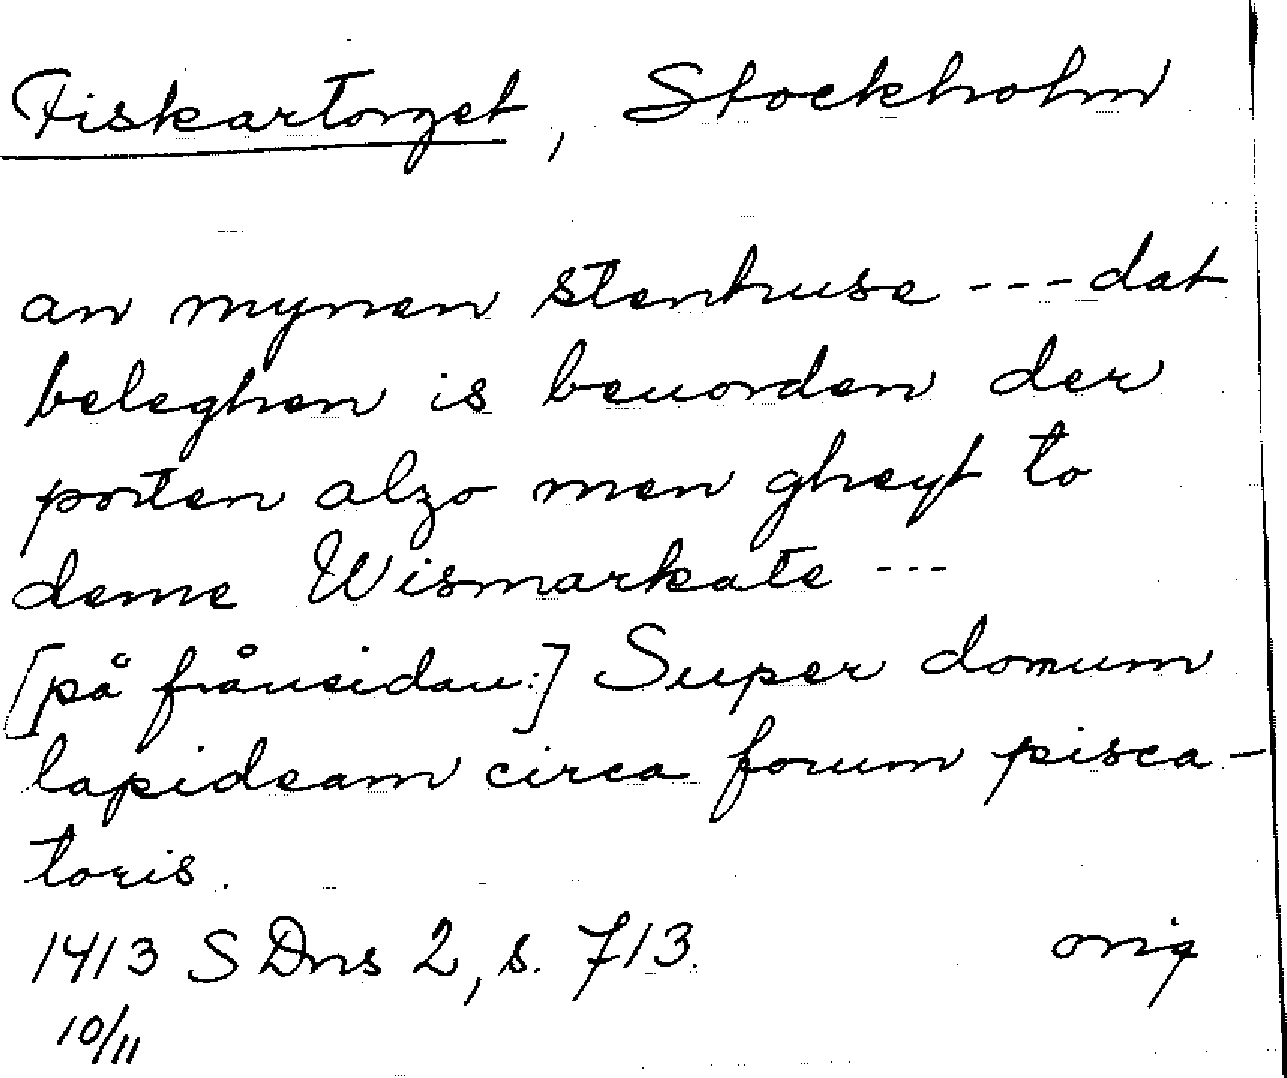 Fiskartorget, Stockholm
an mynen stenhuse --- dat
beleghen is beuorden der
porten alzo men gheyt to
deme Wismarkate ---
[på frånsidan:] Super domum
lapideam circa forum pisca-
toris.
1413 SDns 2, s. 713. orig
10/11